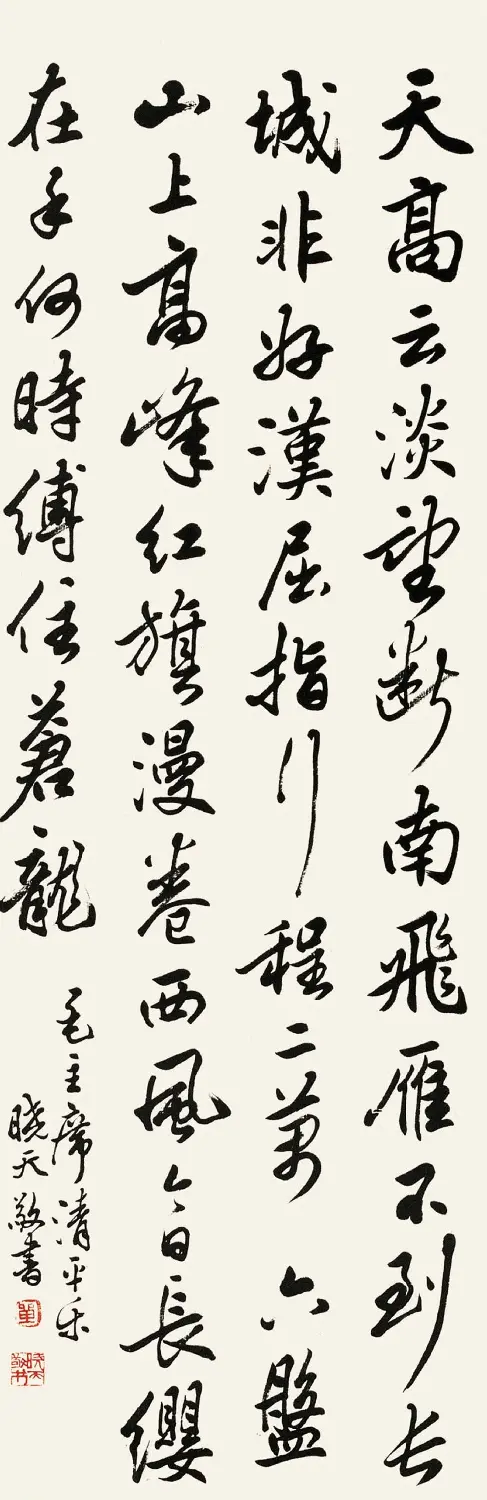 天高云淡望断南飛雁不到长
城非好漢屈指行程二萬六盤
山上高峰红旗漫卷西風今日長纓
在手何時縛住蒼龍
毛主席清平乐
晓天敬書